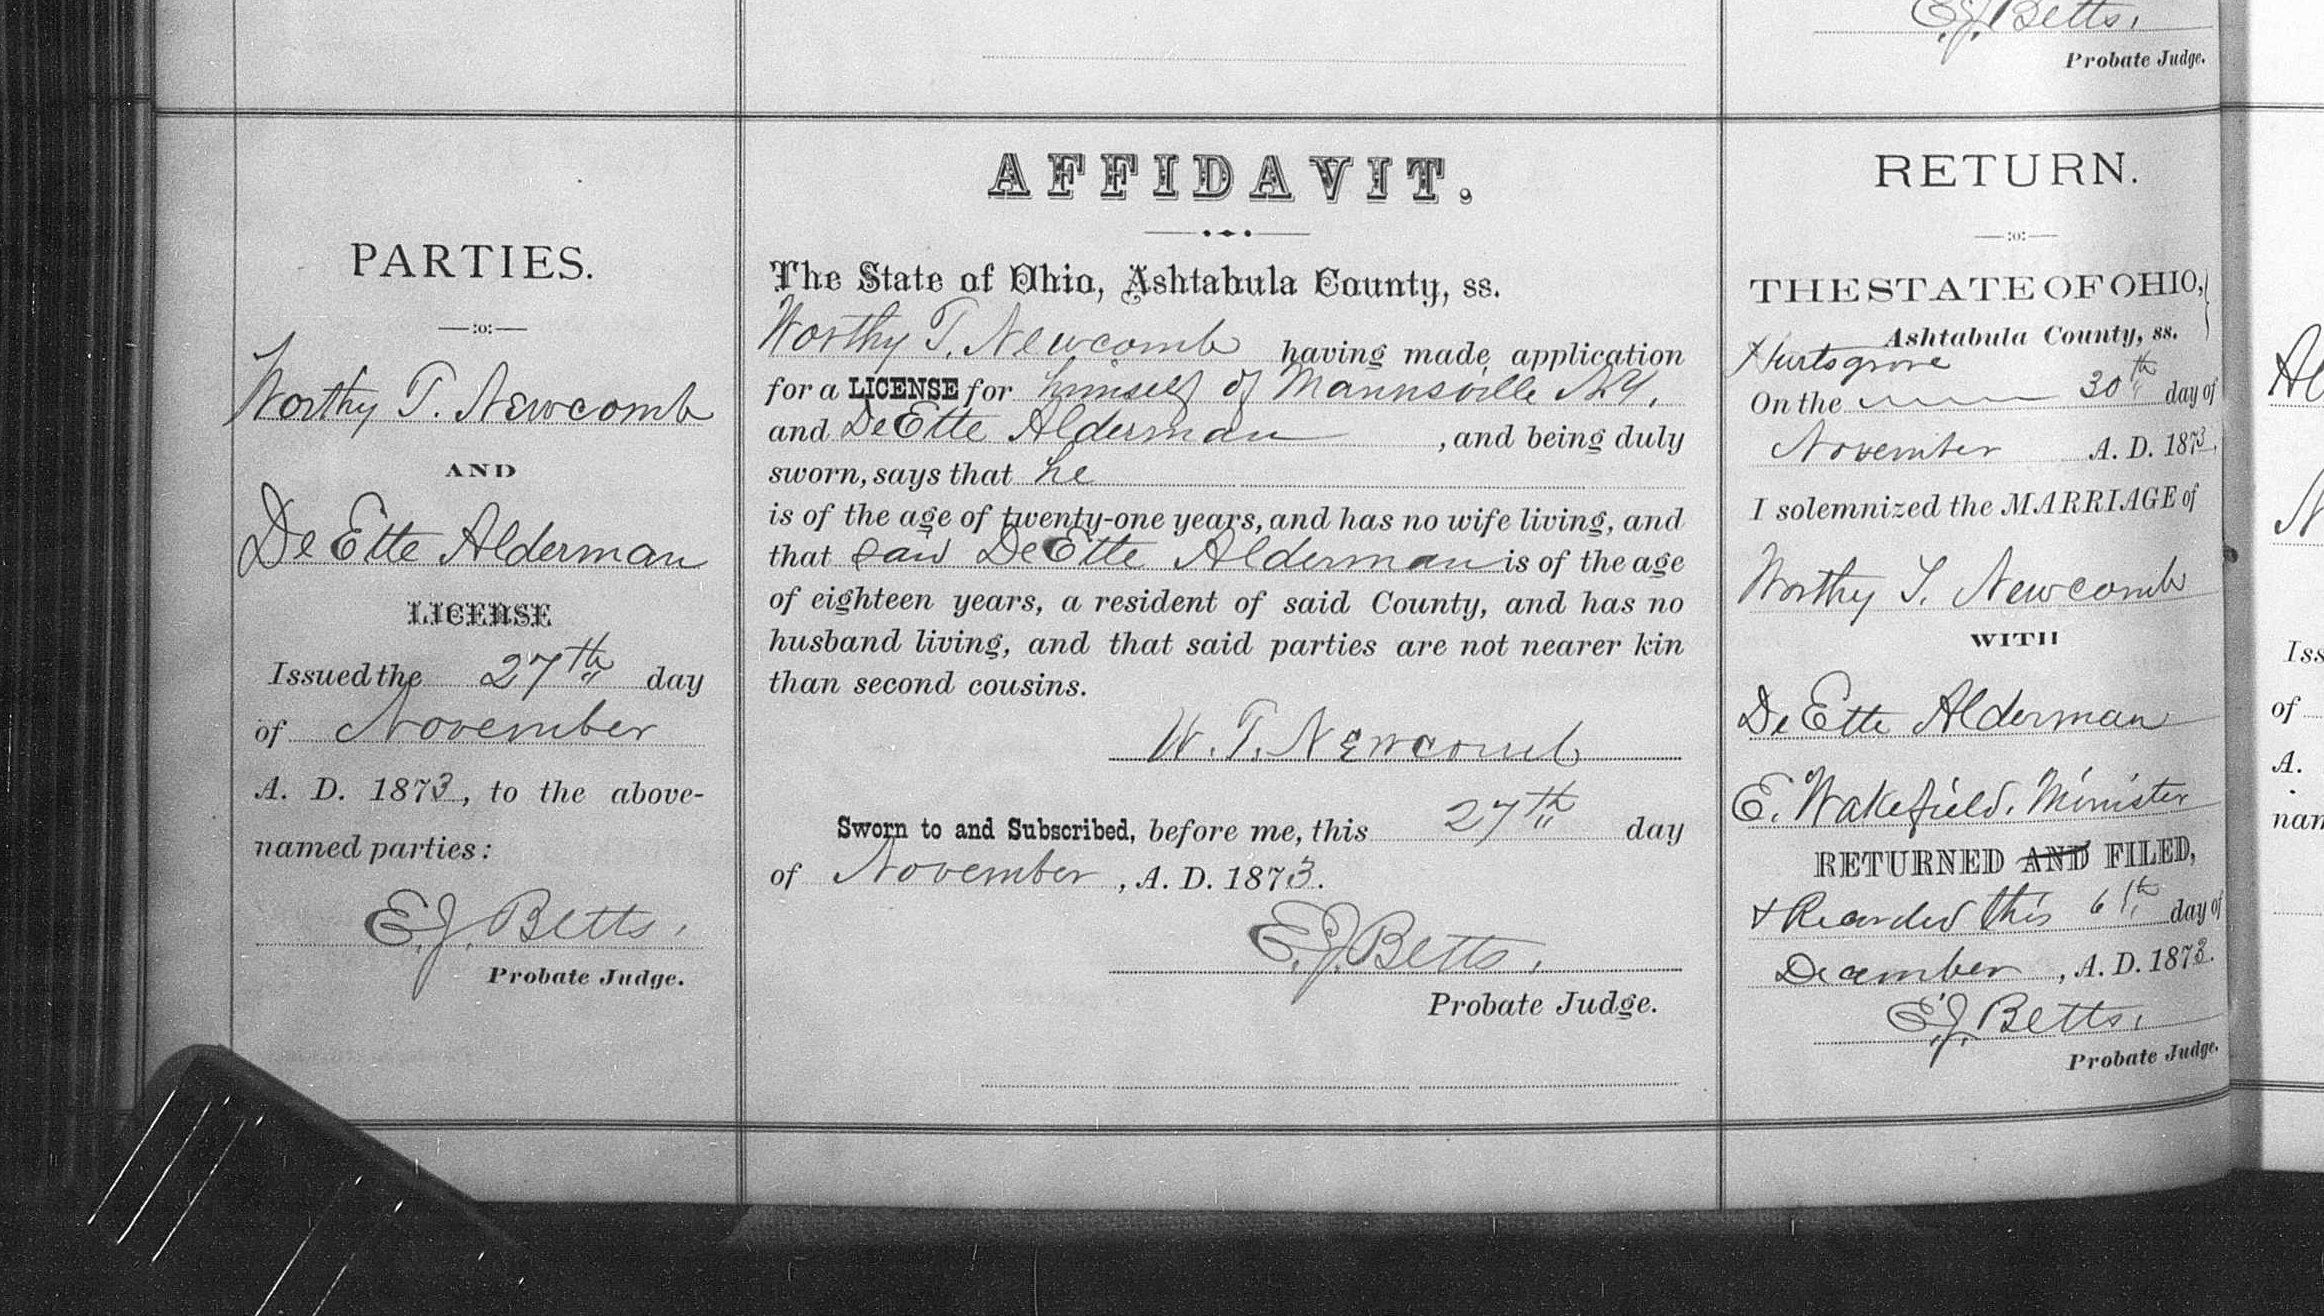 E. J. Betts.
Probate Judge.
PARTIES.
—:o:—
Worthy T. Newcomb
AND
DeEtte Alderman
LICENSE
Issued the 27th day
of November
A. D. 1873, to the above-
named parties:
E. J. Betts.
Probate Judge.
AFFIDAVIT.
The State of Ohio, Ashtabula County, ss.
Worthy T. Newcomb having made application
for a LICENSE for himself of Mannsville N.Y.
and DeEtte Alderman , and being duly
sworn, says that he
is of the age of twenty-one years, and has no wife living, and
that said DeEtte Alderman is of the age
of eighteen years, a resident of said County, and has no
husband living, and that said parties are not nearer kin
than second cousins.
W. T. Newcomb
Sworn to and Subscribed, before me, this 27th day
of November , A. D. 1873.
E. J. Betts.
Probate Judge.
RETURN.
—:o:—
THE STATE OF OHIO,
Ashtabula County, ss.
Hartsgrove
On the 30th day of
November A. D. 1873,
I solemnized the MARRIAGE of
Worthy T. Newcomb
WITH
DeEtte Alderman
E. Wakefield, Minister
RETURNED AND FILED,
& Recorded this 6th day of
December , A. D. 1873.
E. J. Betts.
Probate Judge.
Iss
of
A.
nam